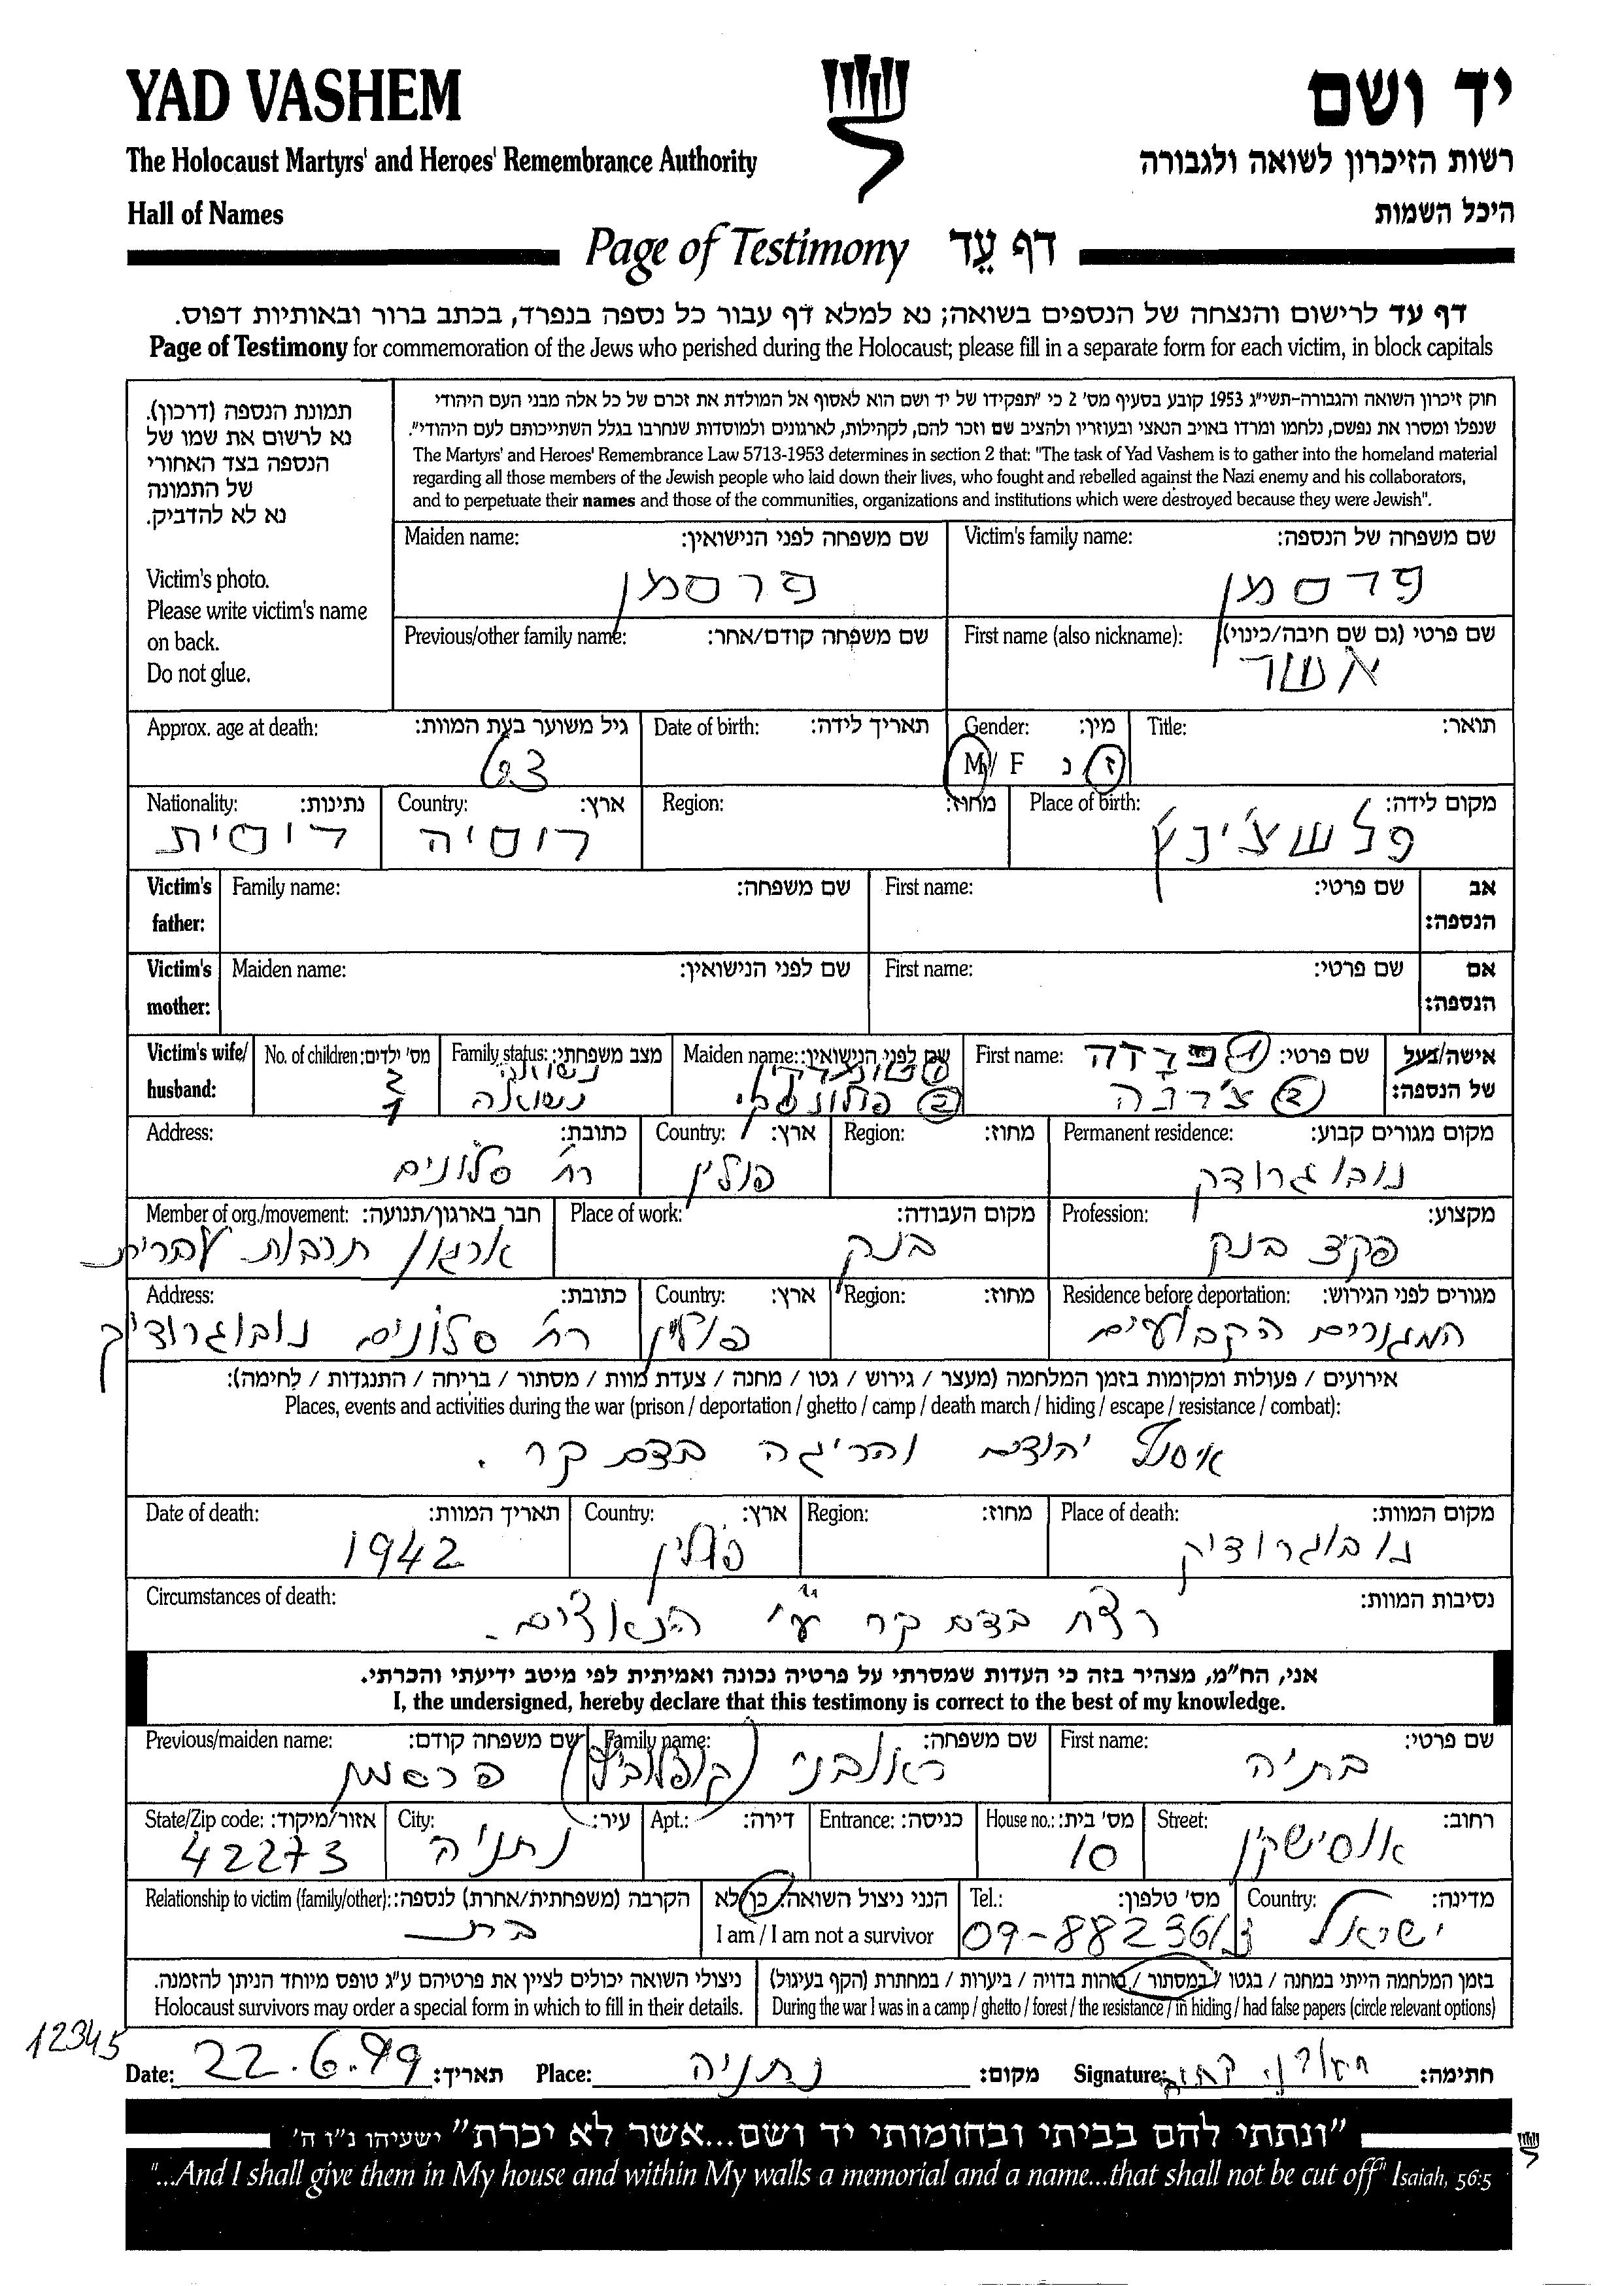 YAD VASHEM
יד ושם
The Holocaust Martyrs' and Heroes' Remembrance Authority
רשות הזיכרון לשואה ולגבורה
Hall of Names
היכל השמות
Page of Testimony דף עֵד
דף עד לרישום והנצחה של הנספים בשואה; נא למלא דף עבור כל נספה בנפרד, בכתב ברור ובאותיות דפוס.
Page of Testimony for commemoration of the Jews who perished during the Holocaust; please fill in a separate form for each victim, in block capitals
תמונת הנספה (דרכון).
נא לרשום את שמו של
הנספה בצד האחורי
של התמונה
נא לא להדביק.
Victim's photo.
Please write victim's name
on back.
Do not glue.
חוק זיכרון השואה והגבורה-תשי"ג 1953 קובע בסעיף מס' 2 כי "תפקידו של יד ושם הוא לאסוף אל המולדת את זכרם של כל אלה מבני העם היהודי
שנפלו ומסרו את נפשם, נלחמו ומרדו באויב הנאצי ובעוזריו ולהציב שם וזכר להם, לקהילות, לארגונים ולמוסדות שנחרבו בגלל השתייכותם לעם היהודי".
The Martyrs' and Heroes' Remembrance Law 5713-1953 determines in section 2 that: "The task of Yad Vashem is to gather into the homeland material
regarding all those members of the Jewish people who laid down their lives, who fought and rebelled against the Nazi enemy and his collaborators,
and to perpetuate their names and those of the communities, organizations and institutions which were destroyed because they were Jewish".
Victim's family name: שם משפחה של הנספה:
פרסמן
Maiden name: שם משפחה לפני הנישואין:
פרסמן
First name (also nickname): שם פרטי (גם שם חיבה/כינוי):
אשר
Previous/other family name: שם משפחה קודם/אחר:
Title: תואר:
Gender: מין:
M / F ז / נ
Date of birth: תאריך לידה:
Approx. age at death: גיל משוער בעת המוות:
63
Place of birth: מקום לידה:
פלשצ'ניץ
Region: מחוז:
Country: ארץ:
רוסיה
Nationality: נתינות:
רוסית
Victim's father: אב הנספה:
First name: שם פרטי:
Family name: שם משפחה:
Victim's mother: אם הנספה:
First name: שם פרטי:
Maiden name: שם לפני הנישואין:
Victim's wife/ husband: אישה/בעל של הנספה:
First name: שם פרטי:
Maiden name: שם לפני הנישואין:
Family status: מצב משפחתי:
נשואה
נשואה
No. of children: מס' ילדים:
Permanent residence: מקום מגורים קבוע:
נובוגרודק
Region: מחוז:
Country: ארץ:
פולין
Address: כתובת:
רח' סלונים
Profession: מקצוע:
פקיד בנק
Place of work: מקום העבודה:
בנק
Member of org./movement: חבר בארגון/תנועה:
ארגון תרבות עברית
Residence before deportation: מגורים לפני הגירוש:
המגורים הקבועים
Region: מחוז:
Country: ארץ:
פולין
Address: כתובת:
רח' סלונים נובוגרודיק
אירועים / פעולות ומקומות בזמן המלחמה (מעצר / גירוש / גטו / מחנה / צעדת מוות / מסתור / בריחה / התנגדות / לחימה):
Places, events and activities during the war (prison / deportation / ghetto / camp / death march / hiding / escape / resistance / combat):
איסוף יהודים והריגה בדם קר.
Place of death: מקום המוות:
נובוגרודיק
Region: מחוז:
Country: ארץ:
פולין
Date of death: תאריך המוות:
1942
Circumstances of death: נסיבות המוות:
רצח בדם קר ע"י הנאצים.
אני, הח"מ, מצהיר בזה כי העדות שמסרתי על פרטיה נכונה ואמיתית לפי מיטב ידיעתי והכרתי.
I, the undersigned, hereby declare that this testimony is correct to the best of my knowledge.
First name: שם פרטי:
בתיה
Family name: שם משפחה:
ראובני
Previous/maiden name: שם משפחה קודם:
פרסמן
Street: רחוב:
אוסישקין
House no.: מס' בית:
10
Entrance: כניסה:
Apt.: דירה:
City: עיר:
נתניה
State/Zip code: אזור/מיקוד:
42273
Country: מדינה:
ישראל
Tel.: מס' טלפון:
09-8823613
הנני ניצול השואה: כן/לא
I am / I am not a survivor
Relationship to victim (family/other): הקרבה (משפחתית/אחרת) לנספה:
בת
בזמן המלחמה הייתי במחנה / בגטו / במסתור / בזהות בדויה / ביערות / במחתרת (הקף בעיגול)
During the war I was in a camp / ghetto / forest / the resistance / in hiding / had false papers (circle relevant options)
ניצולי השואה יכולים לציין את פרטיהם ע"ג טופס מיוחד הניתן להזמנה.
Holocaust survivors may order a special form in which to fill in their details.
12345
Date: 22.6.99 תאריך:
Place: נתניה מקום:
Signature: חתימה:
"ונתתי להם בביתי ובחומותי יד ושם...אשר לא יכרת" ישעיהו נ"ו ה'
"...And I shall give them in My house and within My walls a memorial and a name...that shall not be cut off" Isaiah, 56:5